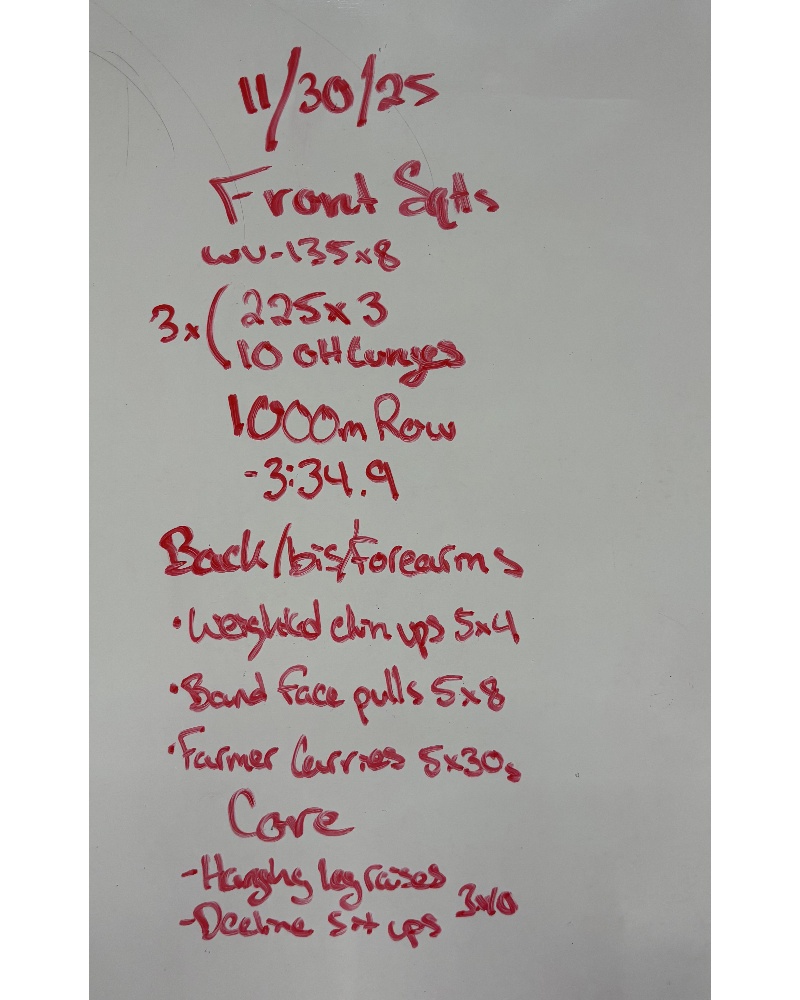 11/30/25
Front Sqts
WU-135x8
3x ( 225x3
10 OH Lunges
1000m Row
-3:34.9
Back/bis/Forearms
• Weighted chin ups 5x4
• Band Face pulls 5x8
• Farmer Carries 5x30s
Core
-Hanging leg raises
3x10
-Decline sit ups